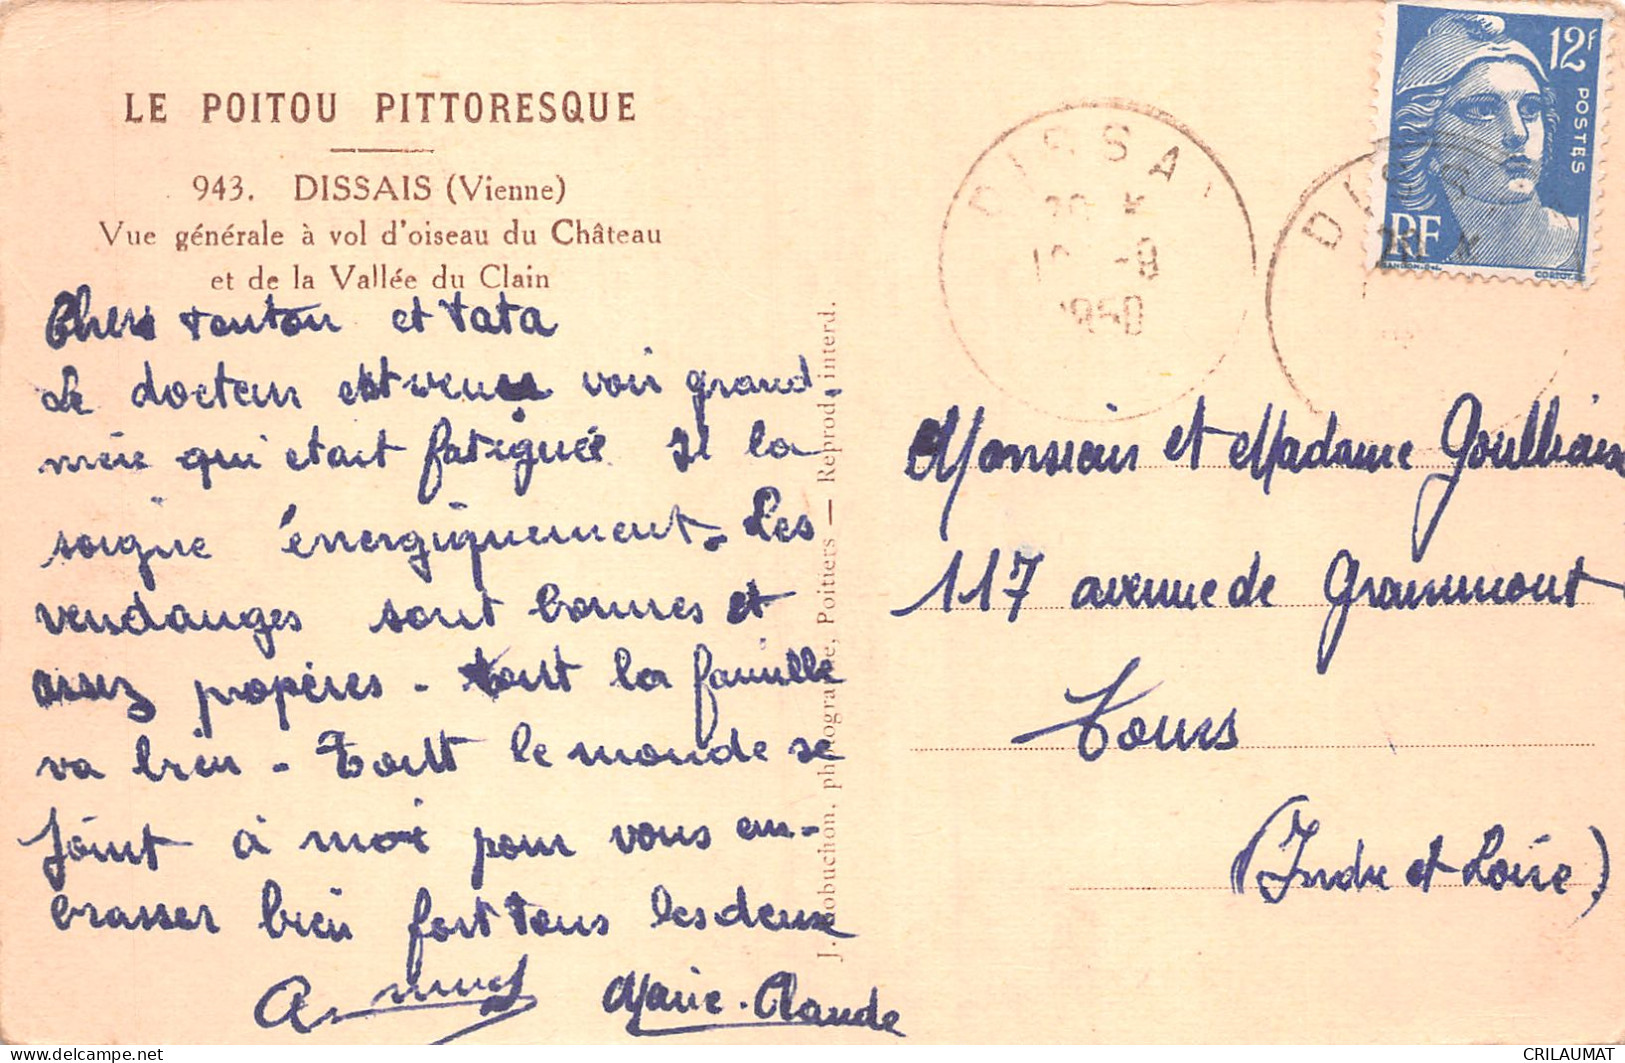 LE POITOU PITTORESQUE
943. DISSAIS (Vienne)
Vue générale à vol d'oiseau du Château
et de la Vallée du Clain
Chers tonton et tata
Le docteur est venu voir grand-
mère qui était fatiguée Il la
soigne énergiquement. Les
vendanges sont bonnes et
assez propères - tout la famille
va bien - Tout le monde se
joint à moi pour vous em-
brasser bien fort tous les deux
Marie-Claude
J. Robuchon, photographe, Poitiers — Reprod. interd.
DISSA
1950
12F
POSTES
RF
DISS
Monsieur et Madame
117 avenue de Grammont
Tours
(Indre et Loire)
CRILAUMAT
delcampe.net